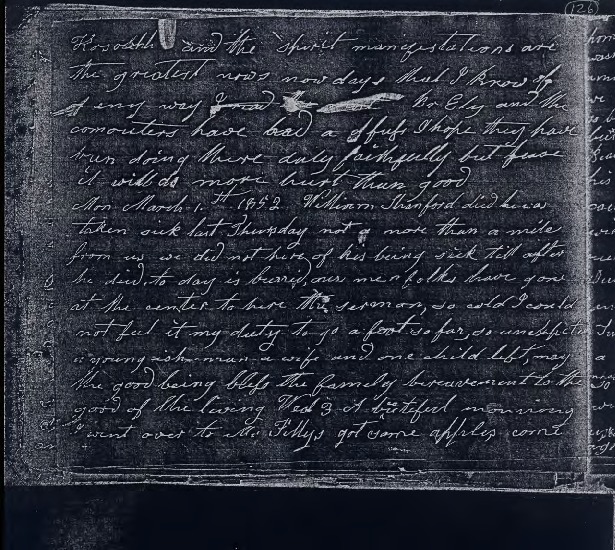 126
Kosouth and the spirit manifestations are
the greatest news now days that I know of
if eny way Mr Ely and the
comouters have had a fuss I hope they have
bun doing there duty faithfully but
it will do more hurt than good
Mon March 1st 1852 William Thanford died he was
taken sick last Thursday not a more than a mile
from us we did not here of his being sick till after
he died, to day is beared, our menfolks have gone
at the center to here the sermon, so cold I could
not feel it my duty to go a foot so far, so
a young man a wife and one child left, may
the good being bless the family bireavement to the
good of the living Wed 3 A butiful morning
I went over to Mr Tillys got some apples come